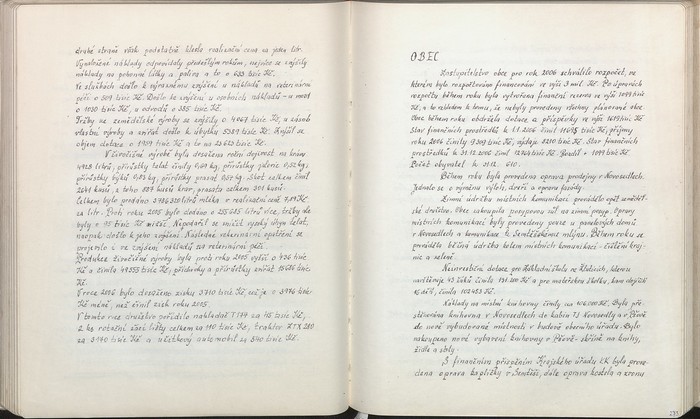 druhé straně však podstatně klesla realizační cena za jeden litr.
Vynaložené náklady odpovídaly předešlým rokům, nejvíce se zvýšily
náklady na pohonné látky a paliva a to o 633 tisíc Kč.
Ve službách došlo k výraznému zvýšení u nákladů na veterinární
péči o 507 tisíc Kč. Došlo ke zvýšení u osobních nákladů - u mezd
o 1030 tisíc Kč, u odvodů o 385 tisíc Kč.
Tržby ze zemědělské výroby se zvýšily o 4067 tisíc Kč, u zásob
vlastní výroby a zvířat došlo k úbytku 5389 tisíc Kč. Zvýšil se
objem dotace o 1909 tisíc Kč a to na 23623 tisíc Kč.
V živočišné výrobě byla dosažena roční dojivost na krávu
litrů, přírůstky telat činily kg, přírůstky jalovic kg,
přírůstky býků kg, přírůstky prasat kg. Skot celkem činil
2041 kusů, z toho 857 kusů krav, prasata celkem 301 kusů.
Celkem bylo prodáno litrů mléka v realizační ceně Kč
za litr. Proti roku 2005 bylo dodáno o litrů více, tržby ale
byly o 95 tisíc Kč menší. Nepodařil se snížit vysoký úhyn telat,
naopak došlo k jeho zvýšení. Následná veterinární opatření se
projevila i ve zvýšení nákladů na veterinární péči.
Produkce živočišné výroby byla proti roku 2005 vyšší o 436 tisíc
Kč a činila 49353 tisíc Kč, příchovky a přírůstky zvířat 15686 tisíc
Kč.
V roce 2006 bylo dosaženo zisku 3710 tisíc Kč, což je o 3976 tisíc
Kč méně, než činil zisk roku 2005.
V tomto roce družstvo pořídilo nakladač T174 za 95 tisíc Kč,
2 ks rotační žací lišty celkem za 110 tisíc Kč, traktor ZTX 280
za 3140 tisíc Kč a užitkový automobil za 540 tisíc Kč.
OBEC
Zastupitelstvo obce pro rok 2006 schválilo rozpočet, ve
kterém bylo rozpočtováno financování ve výši mil. Kč. Po úpravách
rozpočtu během roku byla vytvořena finanční rezerva ve výši 1099 tisíc
Kč, a to vzhledem k tomu, že nebyly provedeny všechny plánované akce.
Obec během roku obdržela dotace a příspěvky ve výši 1619 tisíc Kč.
Stav finančních prostředků k 1.1. 2006 činil 11695 tisíc Kč, příjmy
roku 2006 činily 9309 tisíc Kč, výdaje 8210 tisíc Kč. Stav finančních
prostředků k 31.12. 2006 činil 12794 tisíc Kč. Rozdíl + 1099 tisíc Kč.
Počet obyvatel k 31.12. 610.
Během roku byla provedena oprava prodejny v Novosedlech.
Jednalo se o výměnu výloh, dveří a opravu fasády.
Zimní údržbu místních komunikací provádělo opět zemědělské
družstvo. Obec zakoupila posypovou sůl na zimní posyp. Opravy
místních komunikací byly provedeny pouze u panelových domů
v Novosedlech a komunikace k Sentěžskému mlýnu. Během roku se
prováděla běžná údržba kolem místních komunikací - čištění krajnic
a zeleně.
Neinvestiční dotace pro Základní školu ve Štěkni, kterou
navštěvuje 43 žáků činila 131.200 Kč a pro mateřskou školku, kam dochází
dětí, činila 102453 Kč.
Náklady na místní knihovny činily 106000 Kč. Byla přestěhována
knihovna v Novosedlech do kabin TJ Novosedly a v Přívě
do nově vybudované místnosti v budově obecního úřadu. Bylo
nakoupeno nové vybavení knihovny v Přívě - skříně na knihy,
židle a stoly.
S finančním přispěním Krajského úřadu byla provedena
oprava kapličky v Sentěži, dále oprava kostela a zvonu
233